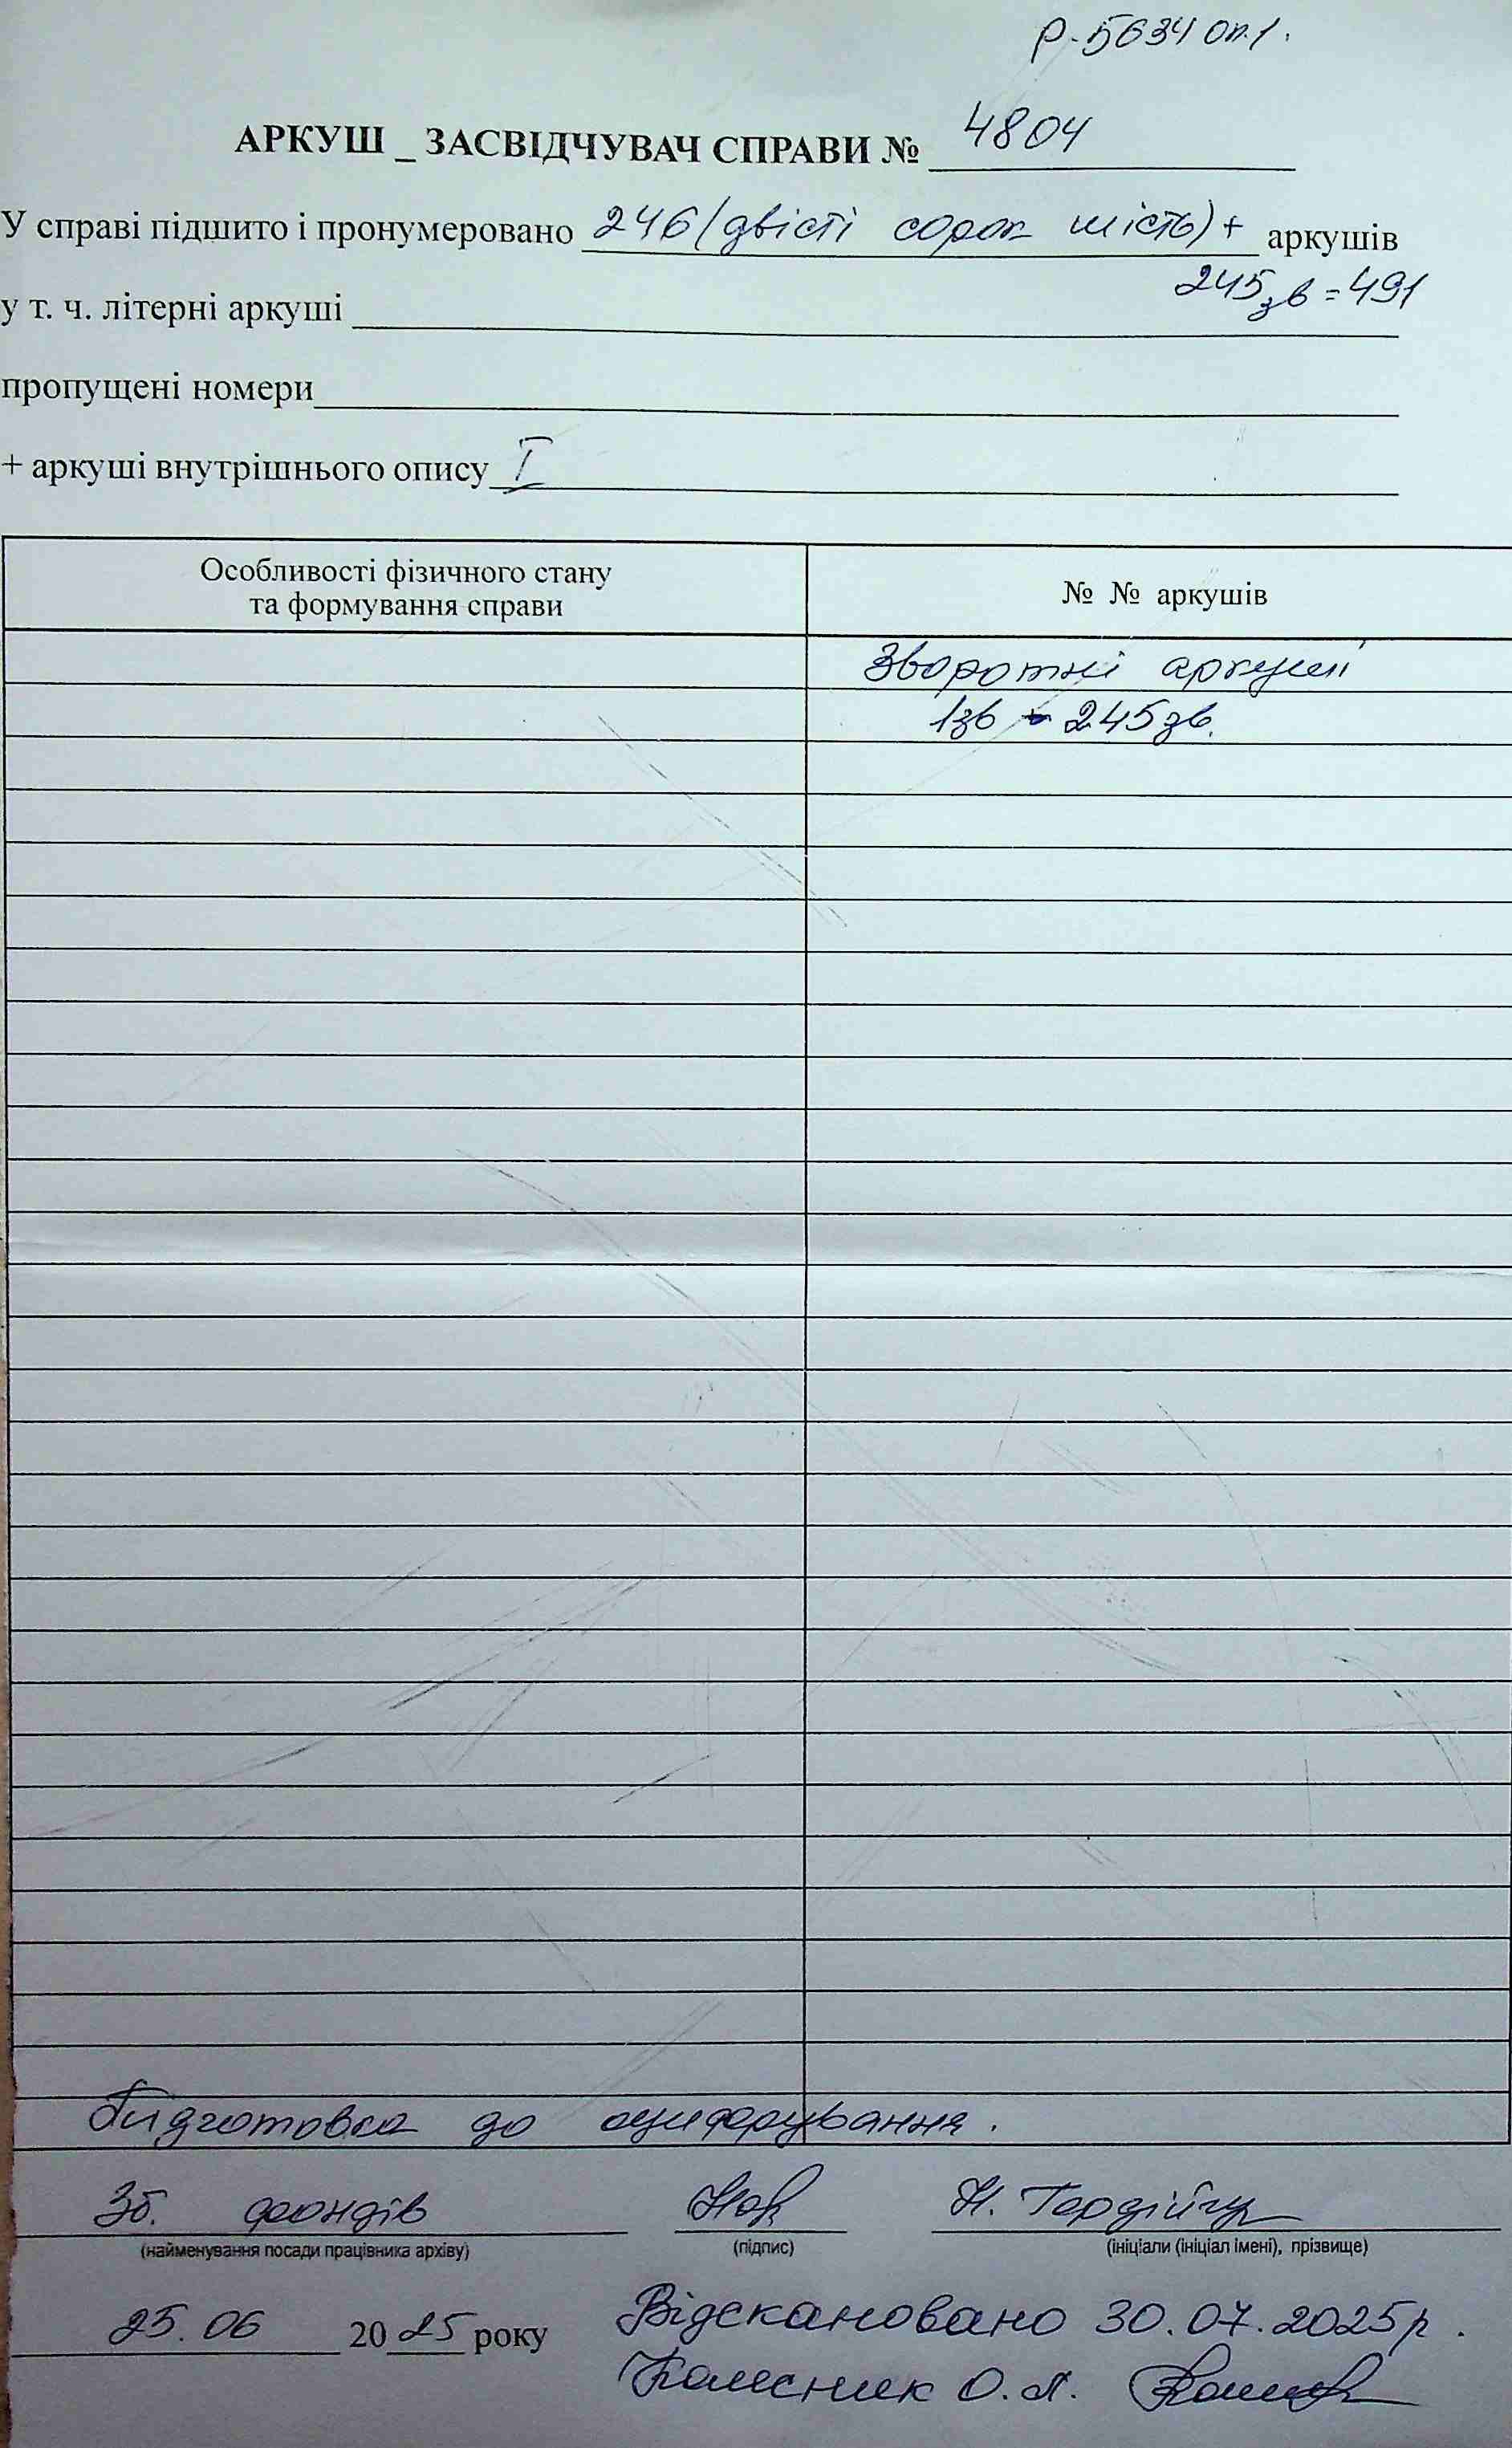 Р-5634 оп.1.
АРКУШ _ ЗАСВІДЧУВАЧ СПРАВИ № 4804
У справі підшито і пронумеровано 246 (двісті сорок шість) + аркушів
245зв = 491
у т. ч. літерні аркуші
пропущені номери
+ аркуші внутрішнього опису I
Особливості фізичного стану
та формування справи
№ № аркушів
Зворотні аркуші
1зв - 245зв.
Підготовка до оцифрування.
Зб. фондів
Н. Гордійчук
(найменування посади працівника архіву) (підпис) (ініціали (ініціал імені), прізвище)
25.06 2025 року
Відскановано 30.07.2025р.
Колесник О.Л.